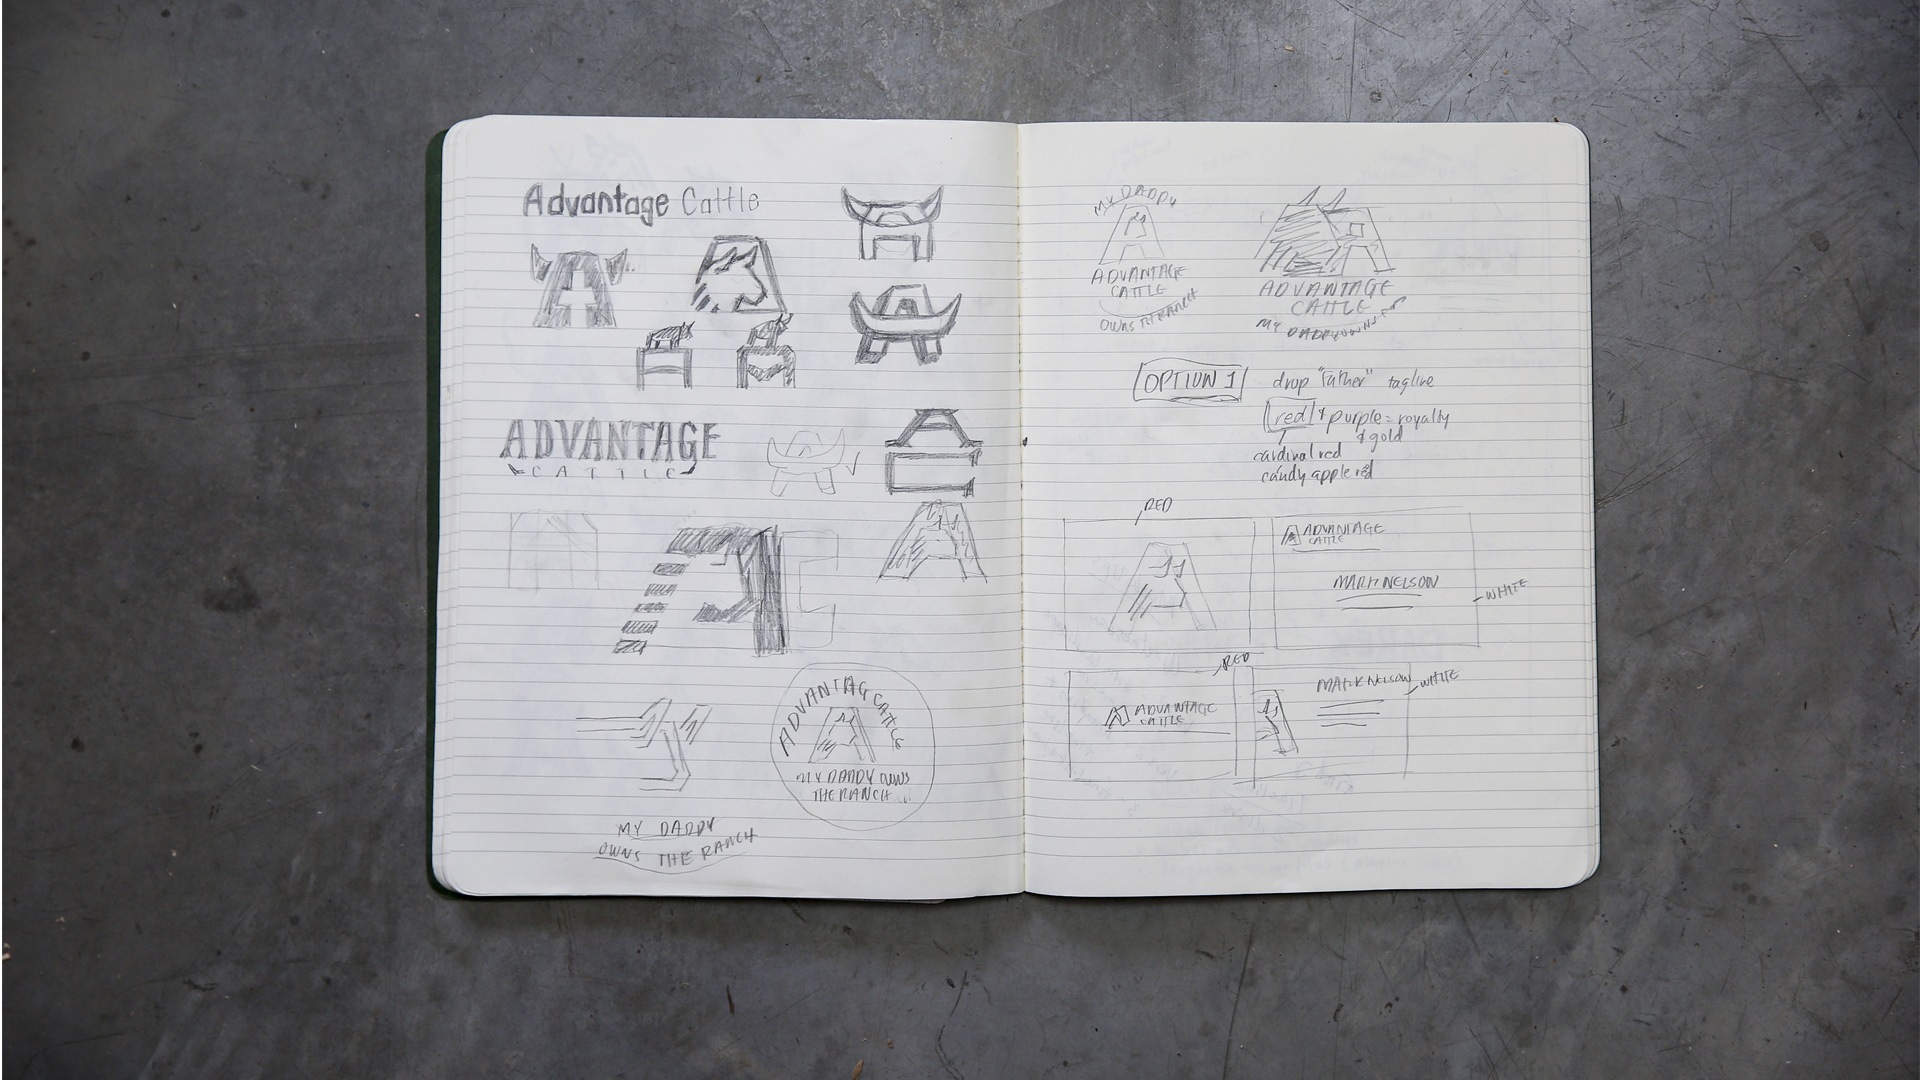 Advantage Cattle
ADVANTAGE
CATTLE
ADVANTAGE CATTLE
A
MY DADDY OWNS
THE RANCH
MY DADDY
OWNS THE RANCH
MY DADDY
ADVANTAGE
CATTLE
OWNS THE RANCH
ADVANTAGE
CATTLE
MY DADDY OWNS
OPTION 1
drop "Father" tagline
red & purple = royalty
& gold
cardinal red
candy apple red
RED
ADVANTAGE
CATTLE
MARK NELSON
WHITE
RED
ADVANTAGE
CATTLE
MARK NELSON
WHITE